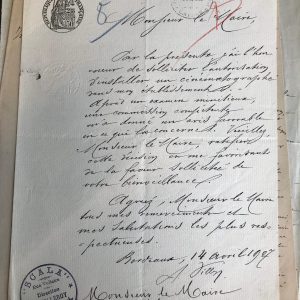 Monsieur le Maire,
Par la présente j'ai l'hon
neur de solliciter l'autorisation
d'installer un cinématographe
dans mon établissement.
Après un examen minutieux,
une commission compétente
a donné un avis favorable
en ce qui la concerne. Veuillez,
Monsieur le Maire, ratifier
cette décision en me favorisant
de la faveur sollicitée de
votre bienveillance.
Agréez, Monsieur le Maire
tous mes remerciements et
mes salutations les plus res-
pectueuses.
Bordeaux, 14 avril 1907
Monsieur le Maire
SCALA
Direction